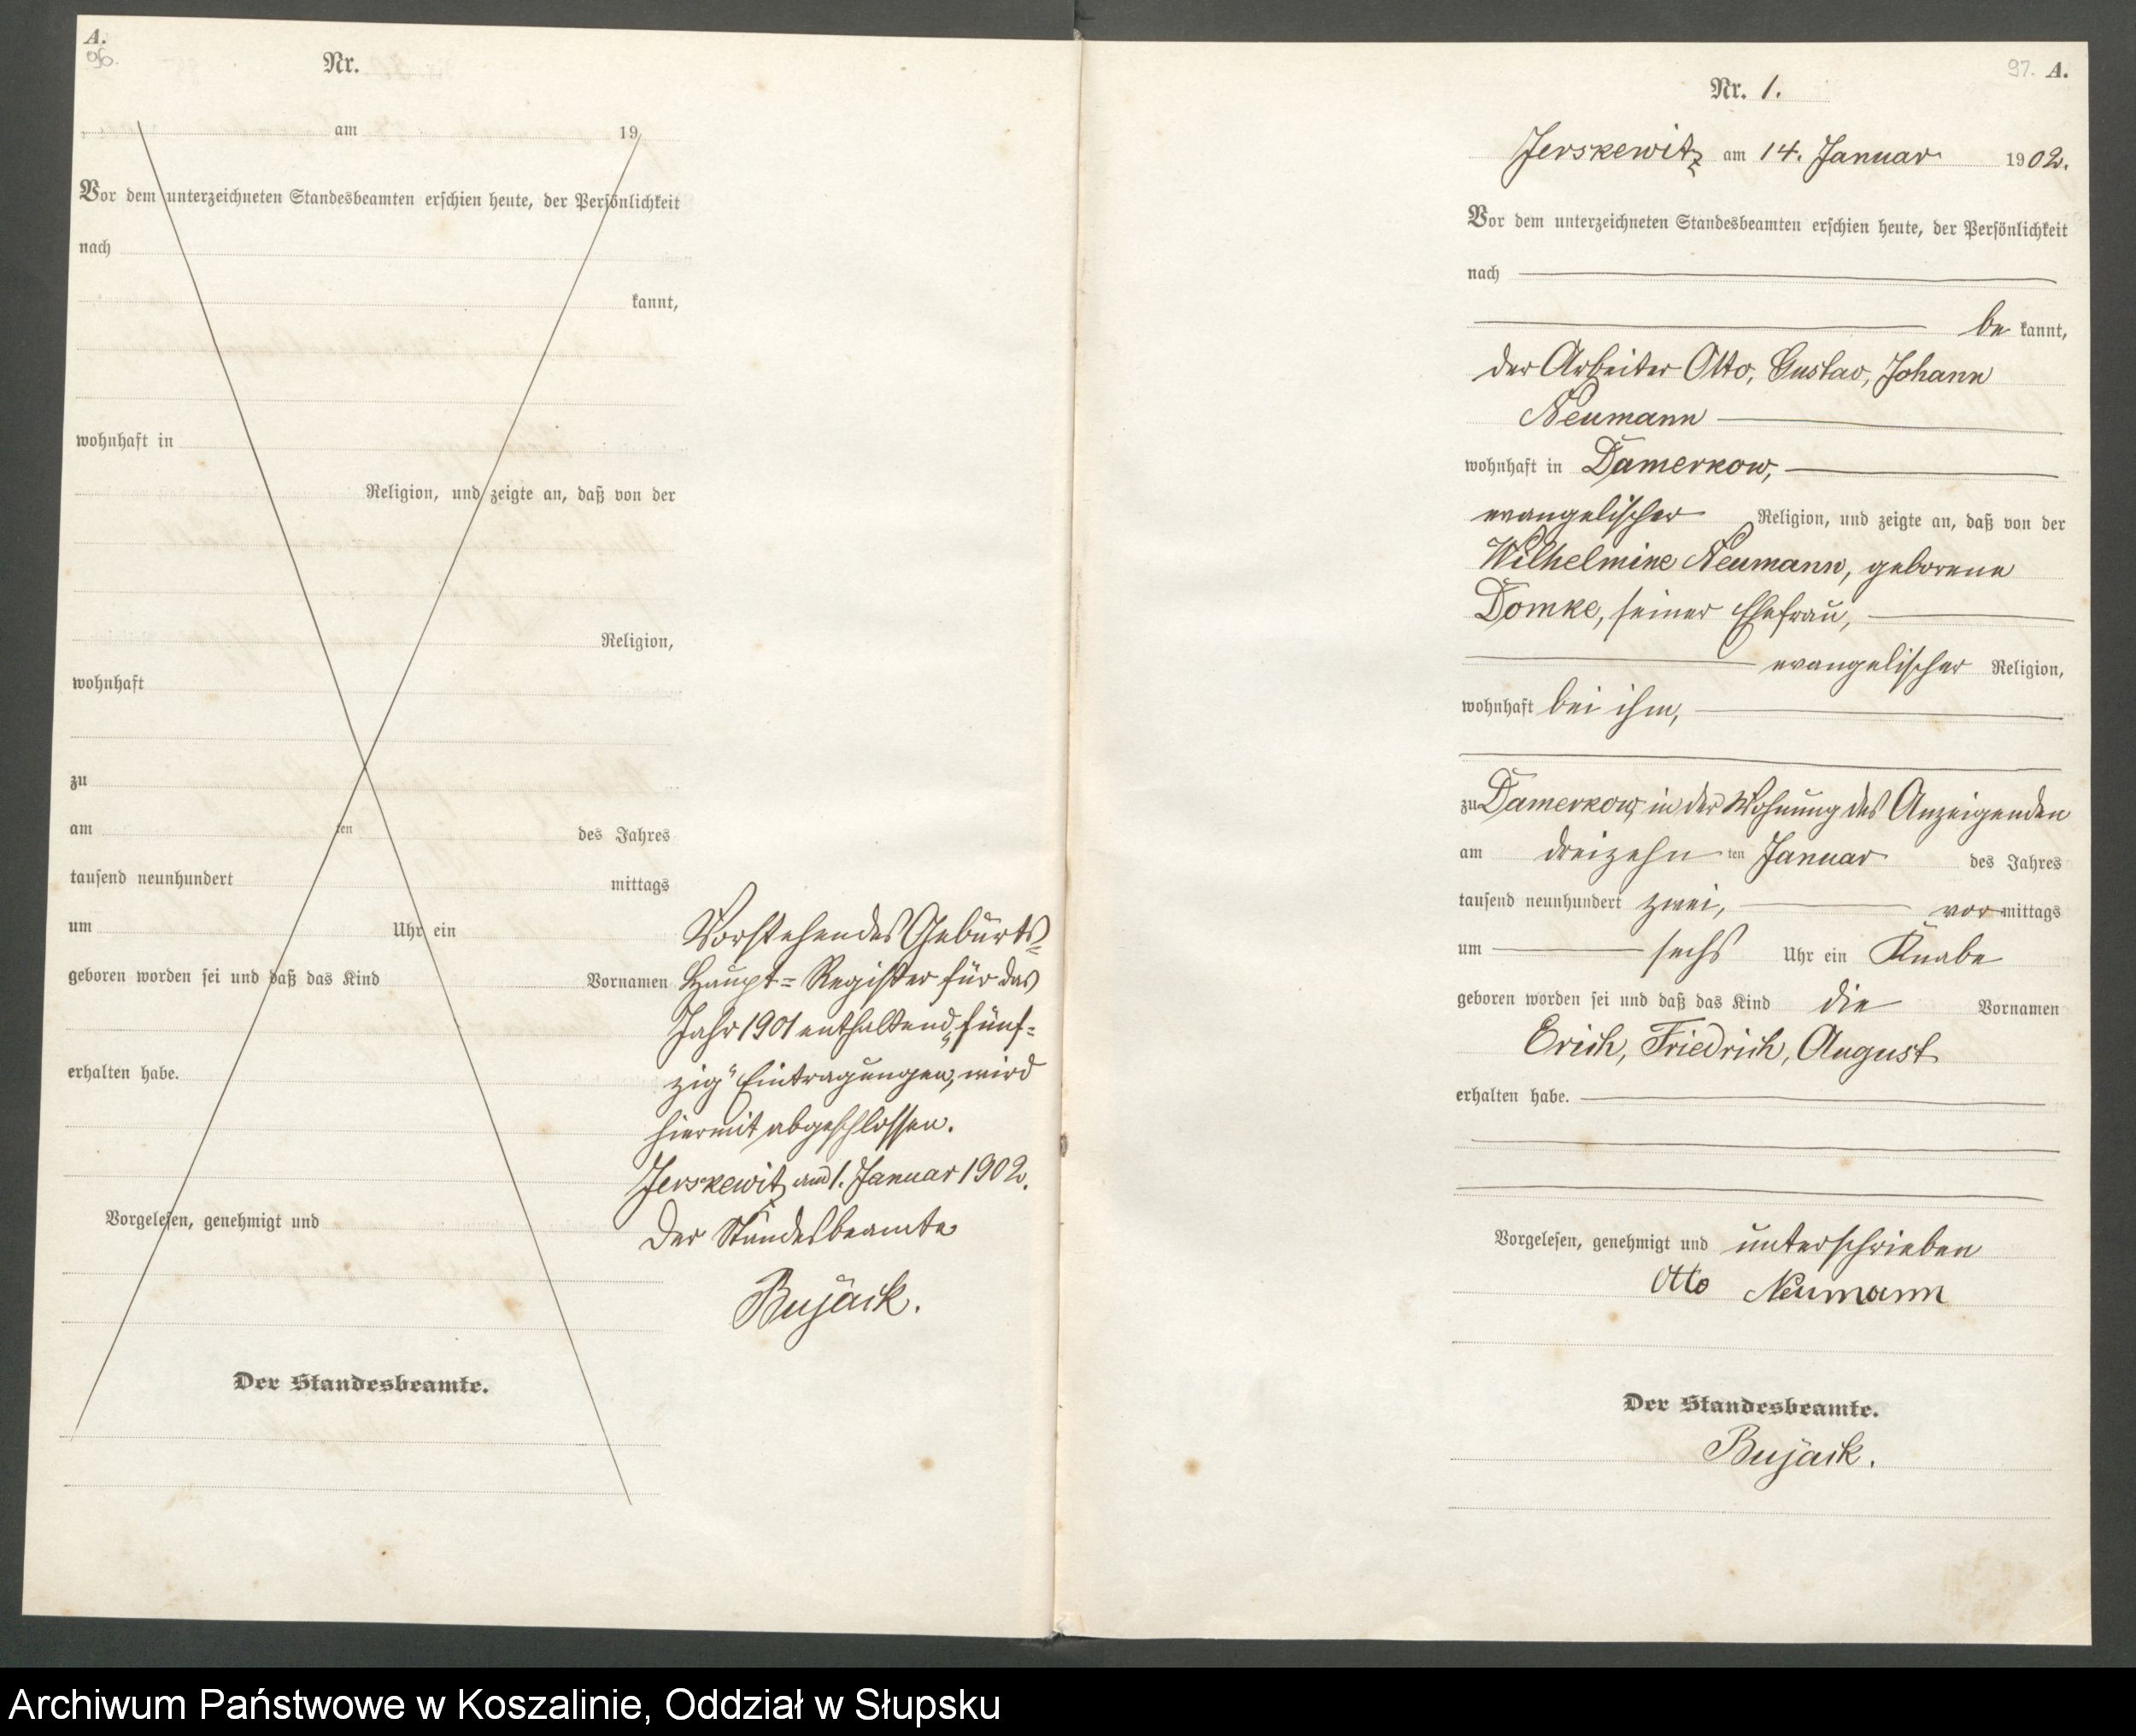 A.
96.
Nr.
am 19
Vor dem unterzeichneten Standesbeamten erschien heute, der Persönlichkeit
nach
kannt,
wohnhaft in
Religion, und zeigte an, daß von der
Religion,
wohnhaft
zu
am ten des Jahres
tausend neunhundert mittags
um Uhr ein
geboren worden sei und daß das Kind Vornamen
erhalten habe.
Vorgelesen, genehmigt und
Der Standesbeamte.
Vorstehendes Geburts-
Haupt-Register für das
Jahr 1901 enthaltend „fünf-
zig“ Eintragungen, wird
hiermit abgeschlossen.
Jerskewitz am 1. Januar 1902.
Der Standesbeamte
Bujack.
97. A.
Nr. 1.
Jerskewitz am 14. Januar 1902.
Vor dem unterzeichneten Standesbeamten erschien heute, der Persönlichkeit
nach
be kannt,
der Arbeiter Otto, Gustav, Johann
Neumann
wohnhaft in Damerkow,
evangelischer Religion, und zeigte an, daß von der
Wilhelmine Neumann, geborene
Domke, seiner Ehefrau,
evangelischer Religion,
wohnhaft bei ihm,
zu Damerkow, in der Wohnung des Anzeigenden
am dreizehn ten Januar des Jahres
tausend neunhundert zwei, vor mittags
um sechs Uhr ein Knabe
geboren worden sei und daß das Kind die Vornamen
Erich, Friedrich, August
erhalten habe.
Vorgelesen, genehmigt und unterschrieben
Otto Neumann
Der Standesbeamte.
Bujack.
Archiwum Państwowe w Koszalinie, Oddział w Słupsku